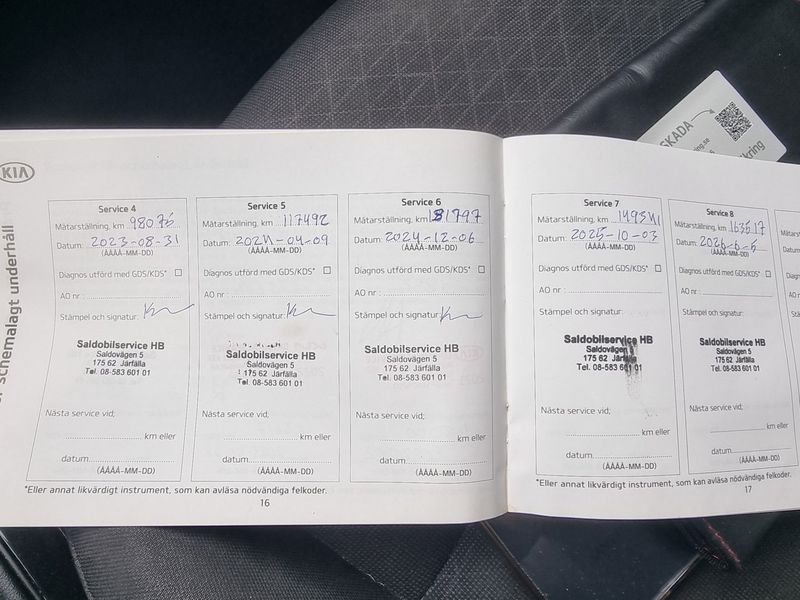 KIA
schemalagt underhåll
Service 4
Mätarställning, km 98075
Datum: 2023-08-31
(ÅÅÅÅ-MM-DD)
Diagnos utförd med GDS/KDS*
AO nr :
Stämpel och signatur:
Saldobilservice HB
Saldovägen 5
175 62 Järfälla
Tel. 08-583 601 01
Nästa service vid;
km eller
datum
(ÅÅÅÅ-MM-DD)
Service 5
Mätarställning, km 117492
Datum: 2024-04-09
(ÅÅÅÅ-MM-DD)
Diagnos utförd med GDS/KDS*
AO nr :
Stämpel och signatur:
Saldobilservice HB
Saldovägen 5
175 62 Järfälla
Tel. 08-583 601 01
Nästa service vid;
km eller
datum
(ÅÅÅÅ-MM-DD)
Service 6
Mätarställning, km 131797
Datum: 2024-12-06
(ÅÅÅÅ-MM-DD)
Diagnos utförd med GDS/KDS*
AO nr :
Stämpel och signatur:
Saldobilservice HB
Saldovägen 5
175 62 Järfälla
Tel. 08-583 601 01
Nästa service vid;
km eller
datum
(ÅÅÅÅ-MM-DD)
*Eller annat likvärdigt instrument, som kan avläsa nödvändiga felkoder.
16
Service 7
Mätarställning, km
Datum: 2025-10-03
(ÅÅÅÅ-MM-DD)
Diagnos utförd med GDS/KDS*
AO nr :
Stämpel och signatur:
Saldobilservice HB
Saldovägen 5
175 62 Järfälla
Tel. 08-583 601 01
Nästa service vid;
km eller
datum
(ÅÅÅÅ-MM-DD)
Service 8
Mätarställning, km 163517
Datum: 2026-6-5
(ÅÅÅÅ-MM-DD)
Diagnos utförd med GDS/KDS*
AO nr :
Stämpel och signatur:
Saldobilservice HB
Saldovägen 5
175 62 Järfälla
Tel. 08-583 601 01
Nästa service vid;
km eller
datum
(ÅÅÅÅ-MM-DD)
*Eller annat likvärdigt instrument, som kan avläsa nödvändiga felkoder.
17
SKADA